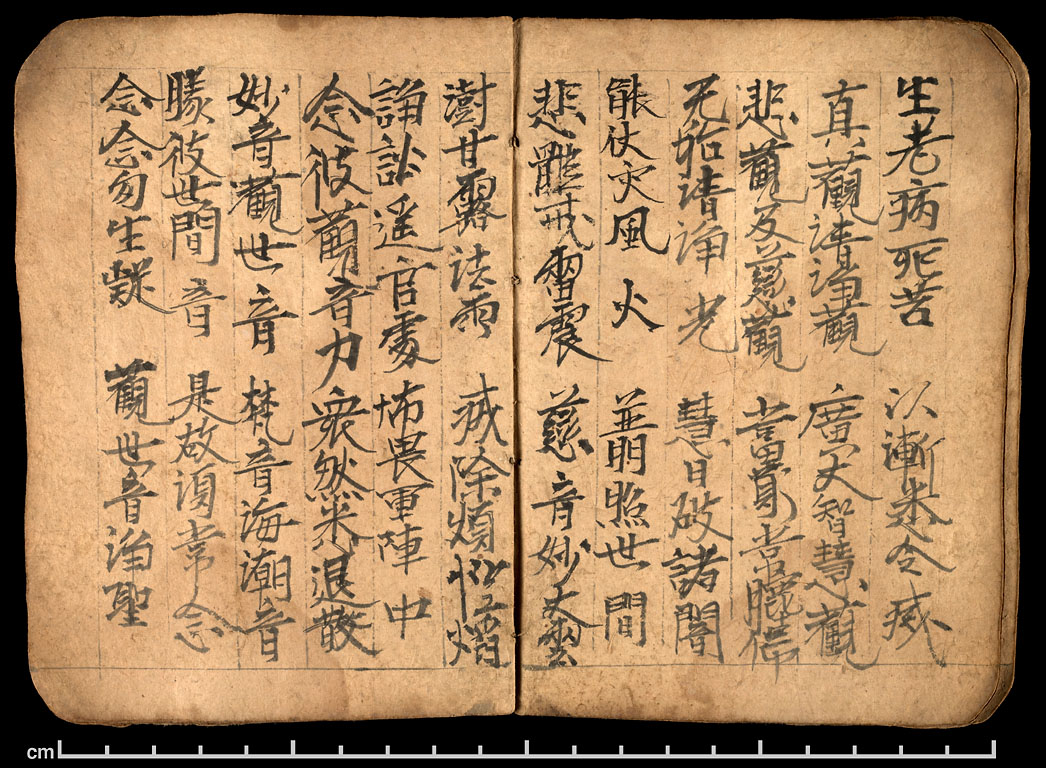 生老病死苦 以漸悉令滅
真觀清淨觀 廣大智慧觀
悲觀及慈觀 當常瞻仰
无垢清淨光 慧日破諸闇
能伏灾風火 普明照世間
悲體戒雷震 慈音妙大雲
澍甘露法雨 滅除煩惱熖
諍訟遥官處 怖畏軍陣中
念彼觀音力 衆然悉退散
妙音觀世音 梵音海潮音
勝彼世間音 是故須常念
念念勿生疑 觀世音淨聖
cm